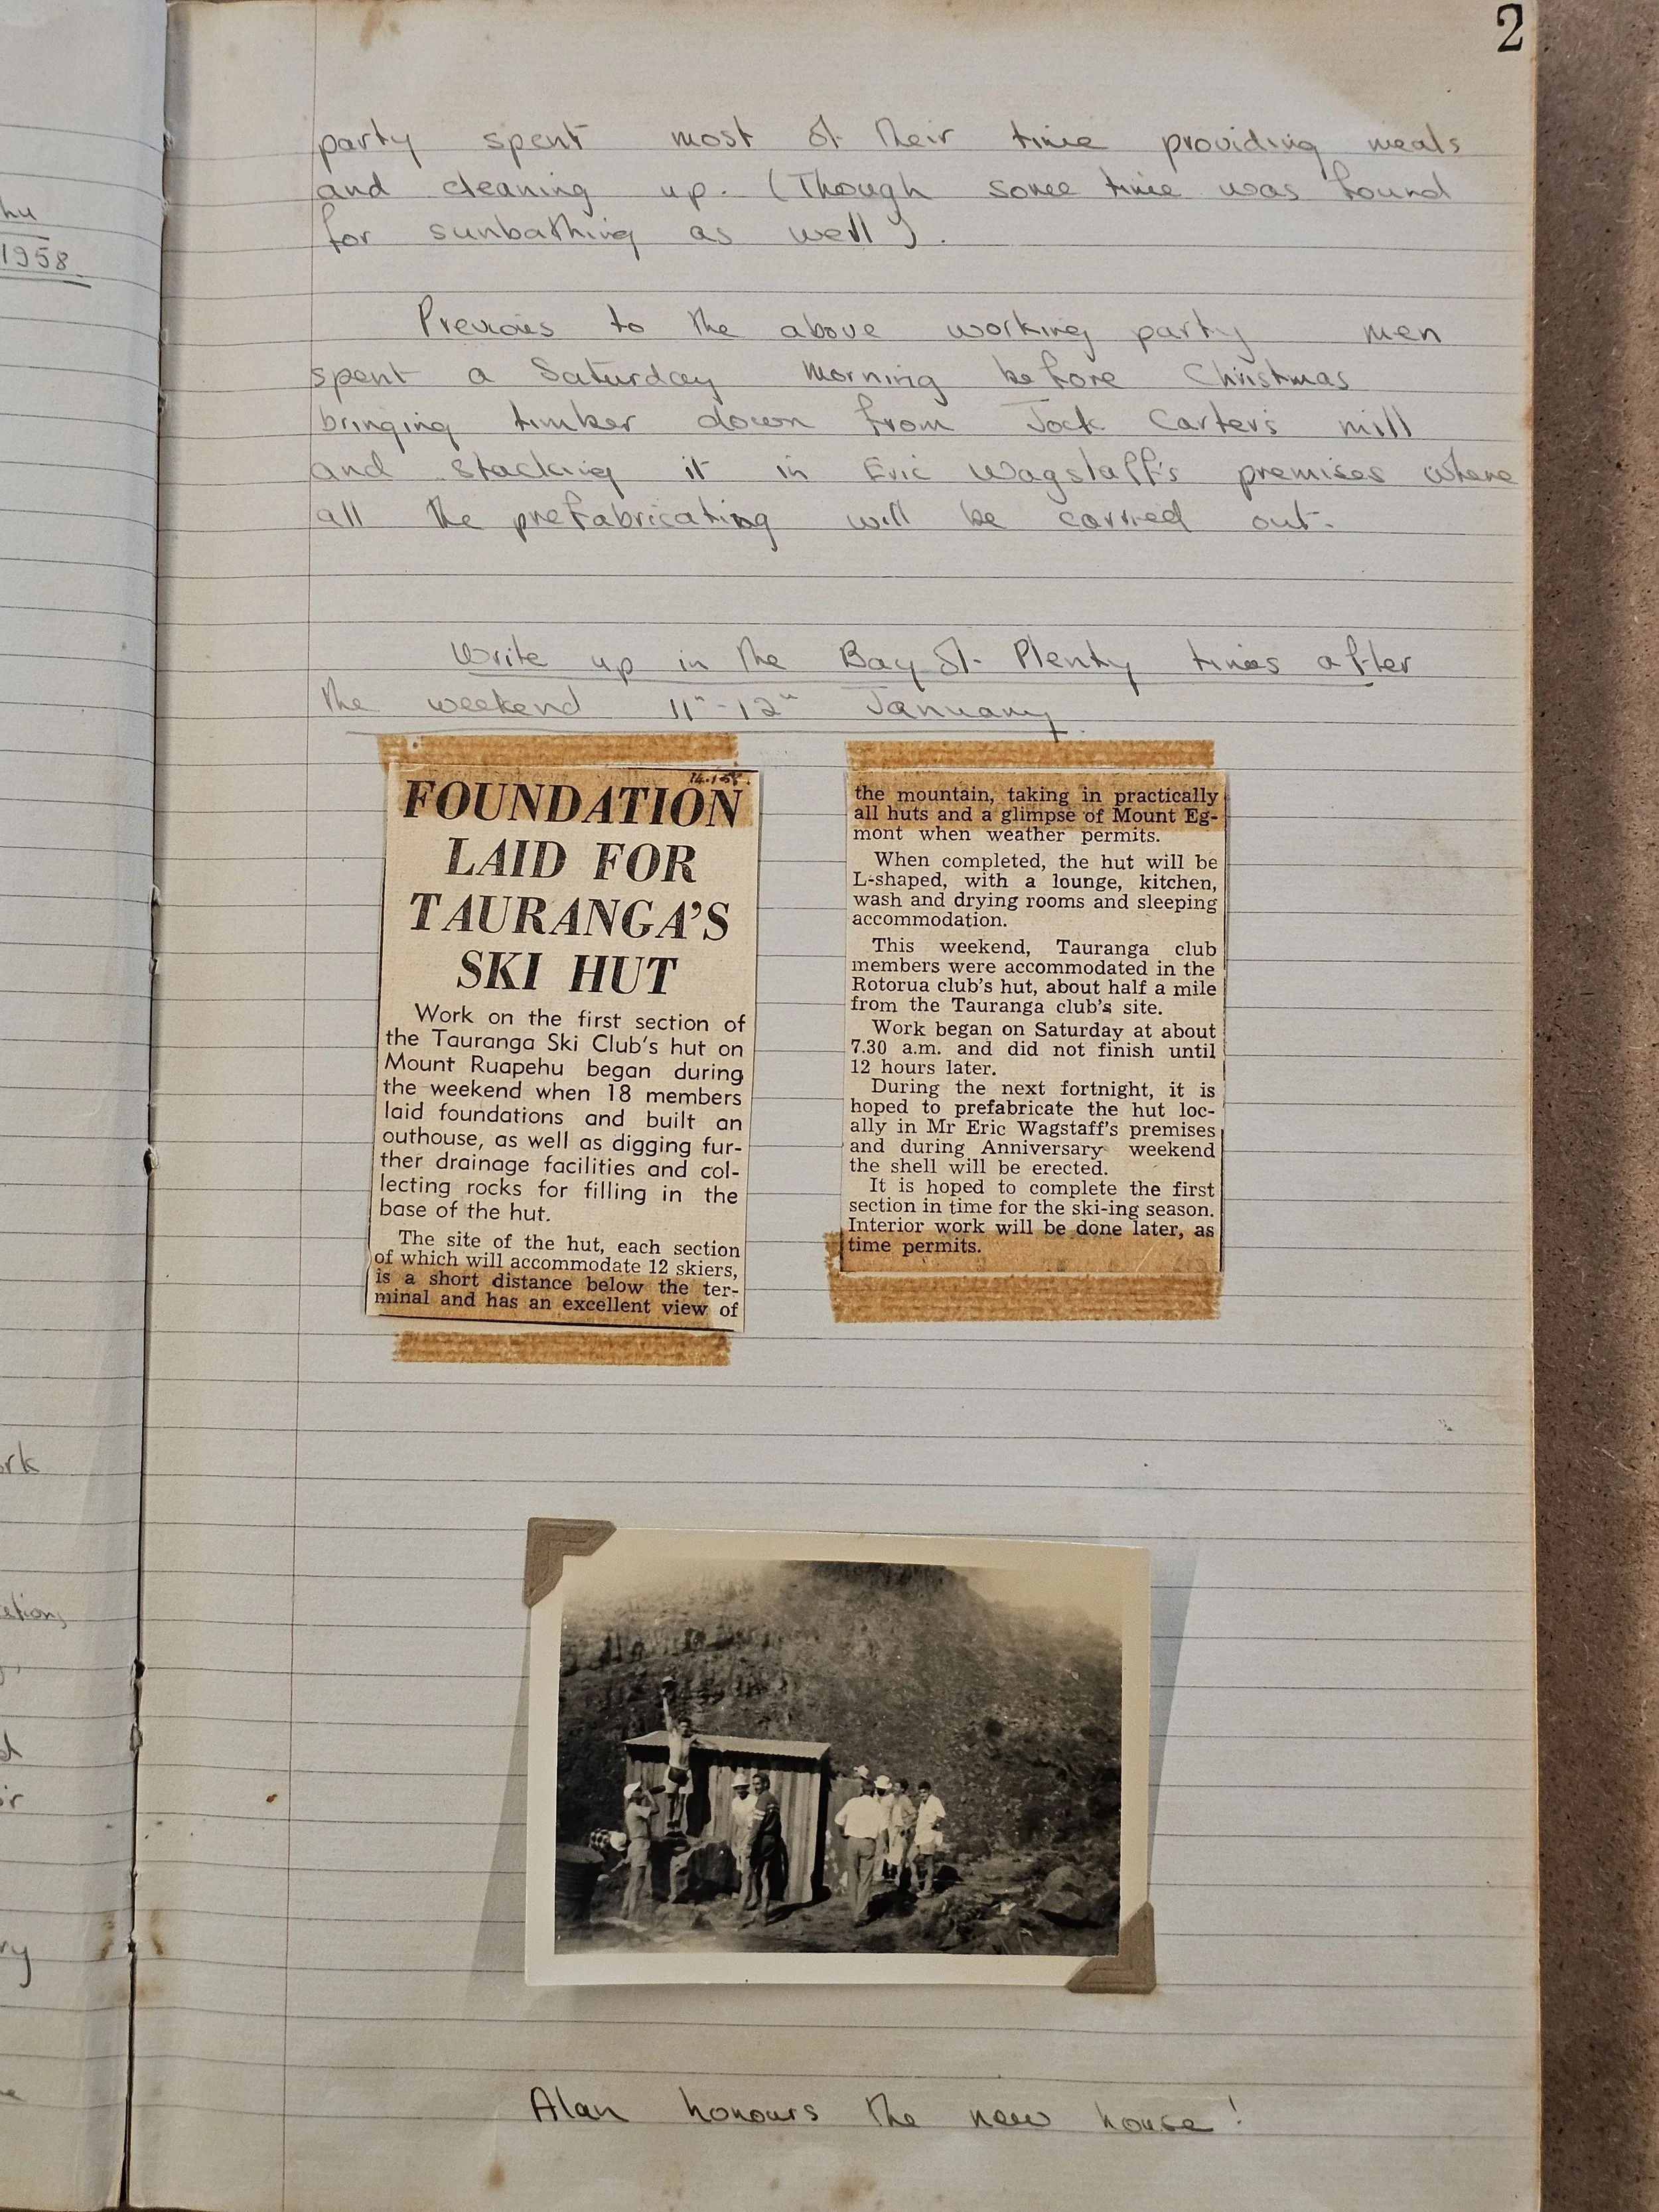 2
party spent most of their time providing meals
and cleaning up. (Though some time was found
for sunbathing as well).
Previous to the above working party men
spent a Saturday morning before Christmas
bringing timber down from Jock Carter's mill
and stacking it in Eric Wagstaff's premises where
all the prefabricating will be carried out.
Write up in the Bay of Plenty times after
the weekend 11"-12" January.
14.1.58.
FOUNDATION
LAID FOR
TAURANGA'S
SKI HUT
Work on the first section of
the Tauranga Ski Club's hut on
Mount Ruapehu began during
the weekend when 18 members
laid foundations and built an
outhouse, as well as digging fur-
ther drainage facilities and col-
lecting rocks for filling in the
base of the hut.
The site of the hut, each section
of which will accommodate 12 skiers,
is a short distance below the ter-
minal and has an excellent view of
the mountain, taking in practically
all huts and a glimpse of Mount Eg-
mont when weather permits.
When completed, the hut will be
L-shaped, with a lounge, kitchen,
wash and drying rooms and sleeping
accommodation.
This weekend, Tauranga club
members were accommodated in the
Rotorua club's hut, about half a mile
from the Tauranga club's site.
Work began on Saturday at about
7.30 a.m. and did not finish until
12 hours later.
During the next fortnight, it is
hoped to prefabricate the hut loc-
ally in Mr Eric Wagstaff's premises
and during Anniversary weekend
the shell will be erected.
It is hoped to complete the first
section in time for the ski-ing season.
Interior work will be done later, as
time permits.
Alan honours the new house!
1958